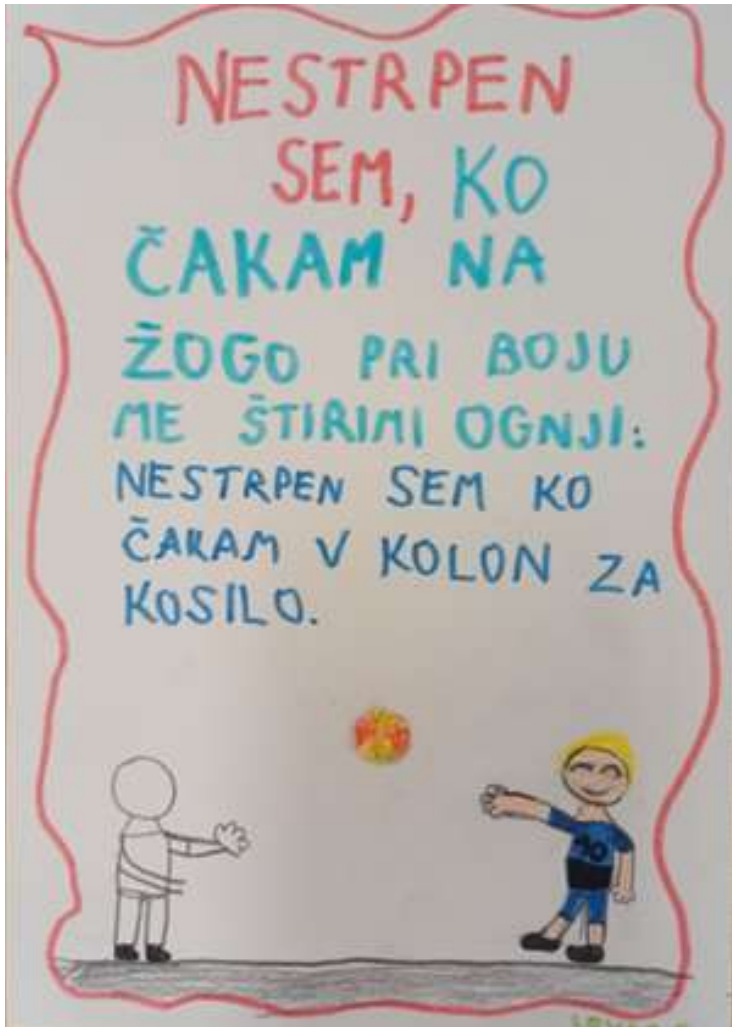 NESTRPEN
SEM, KO
ČAKAM NA
ŽOGO PRI BOJU
ME ŠTIRIMI OGNJI:
NESTRPEN SEM KO
ČAKAM V KOLON ZA
KOSILO.
10